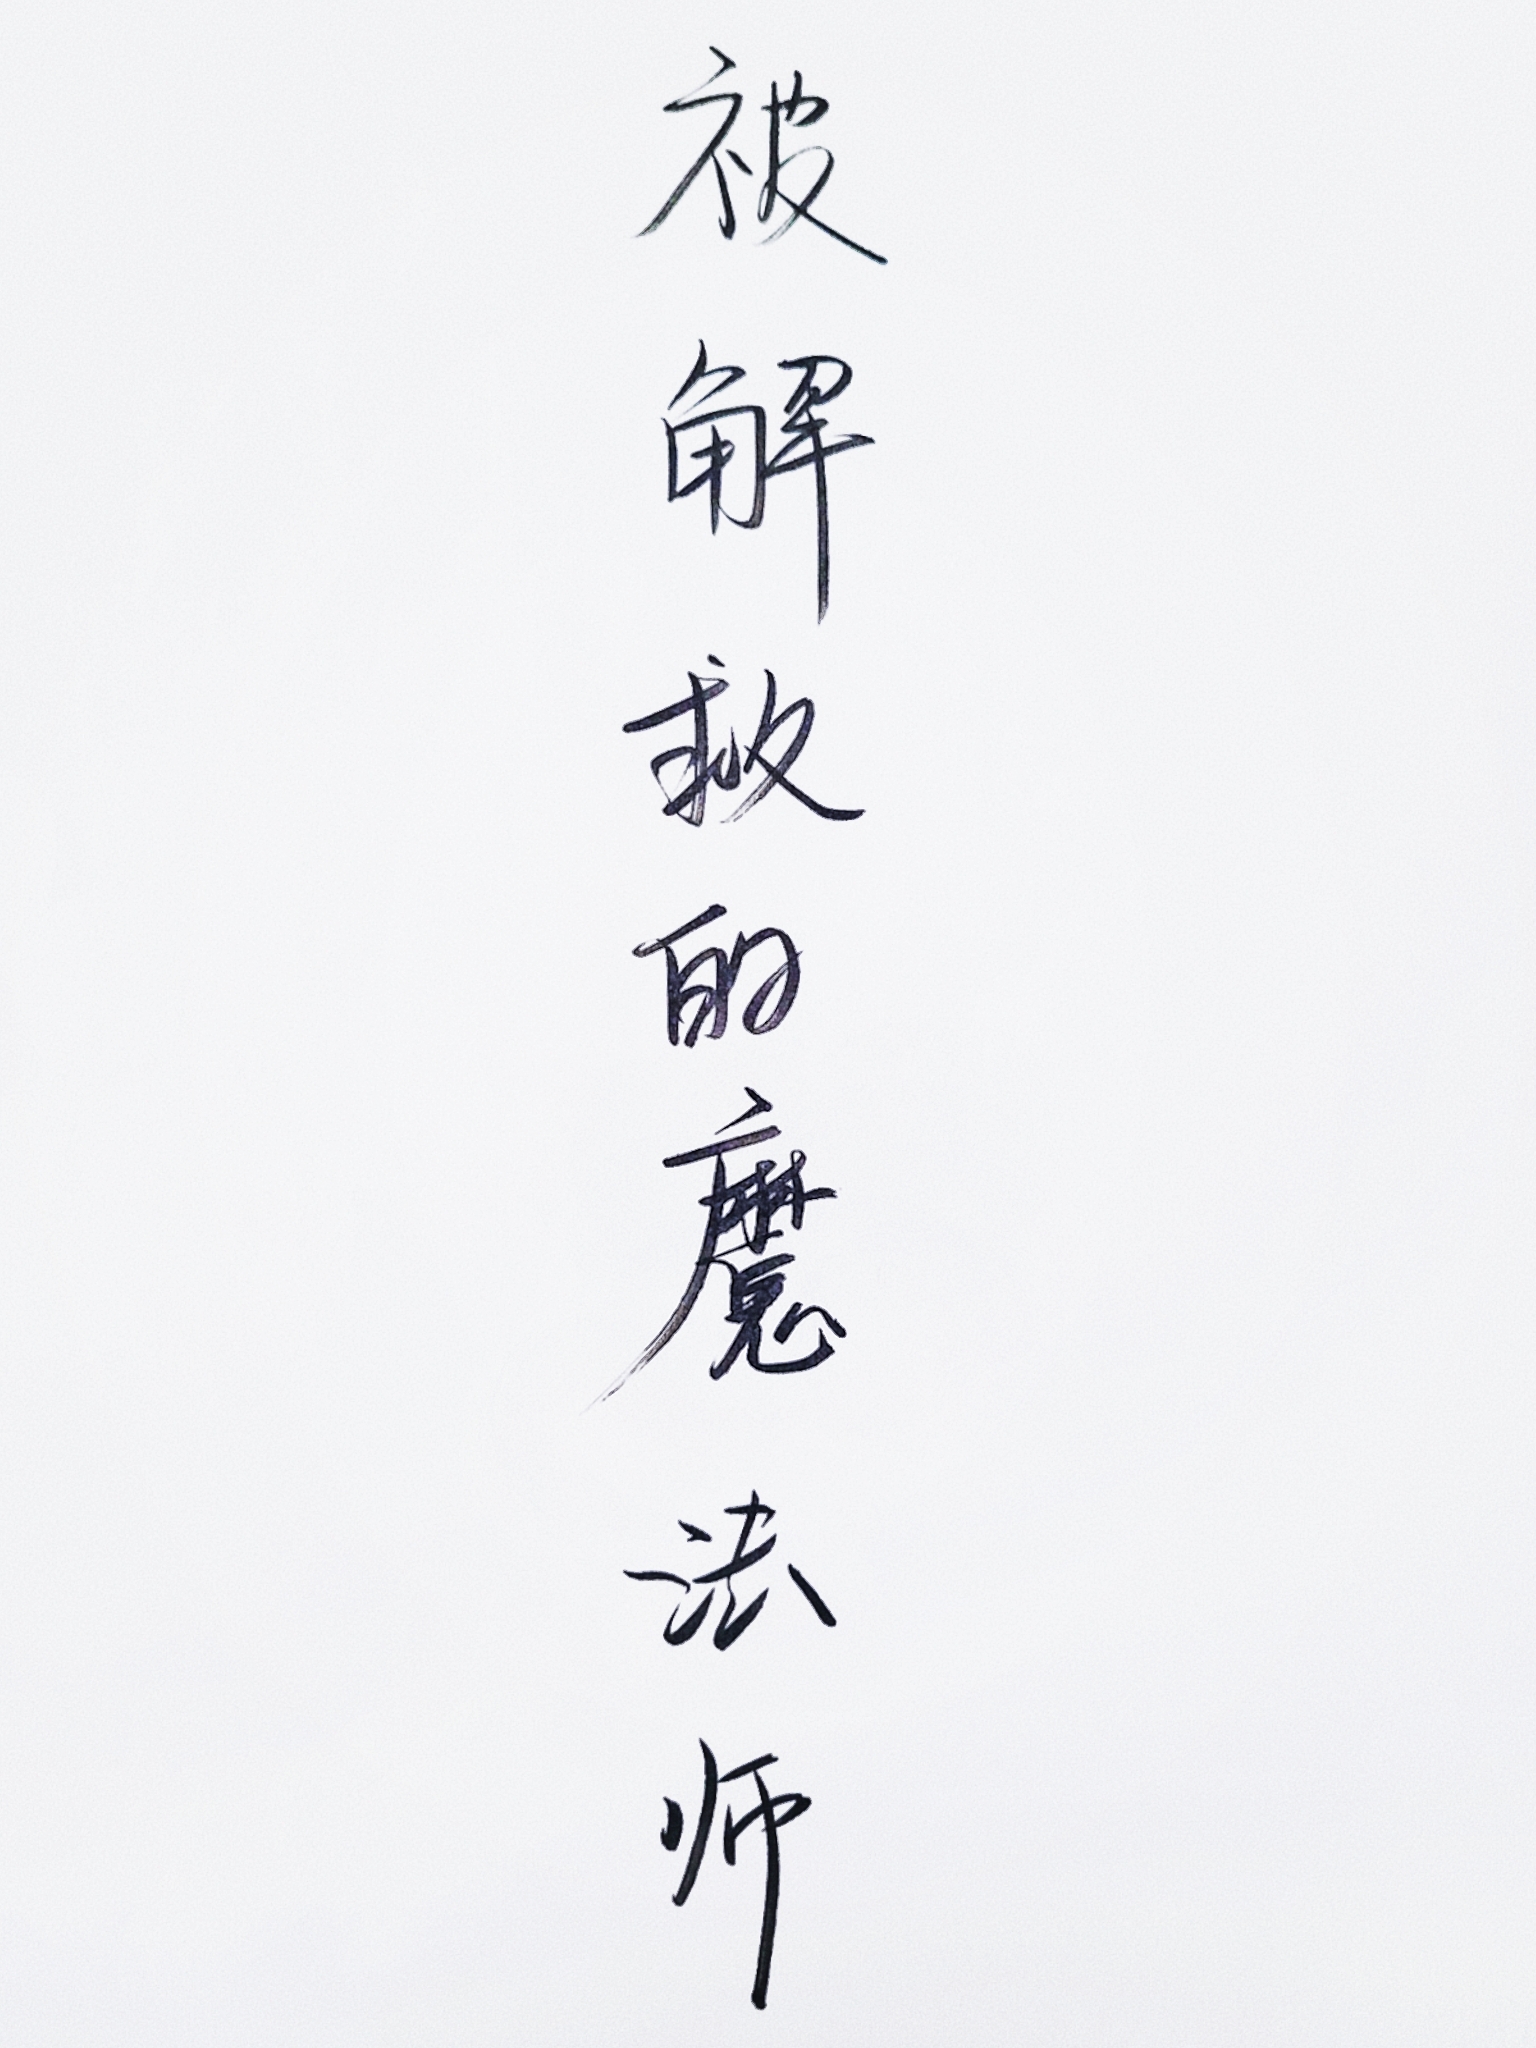 被解救的魔法师